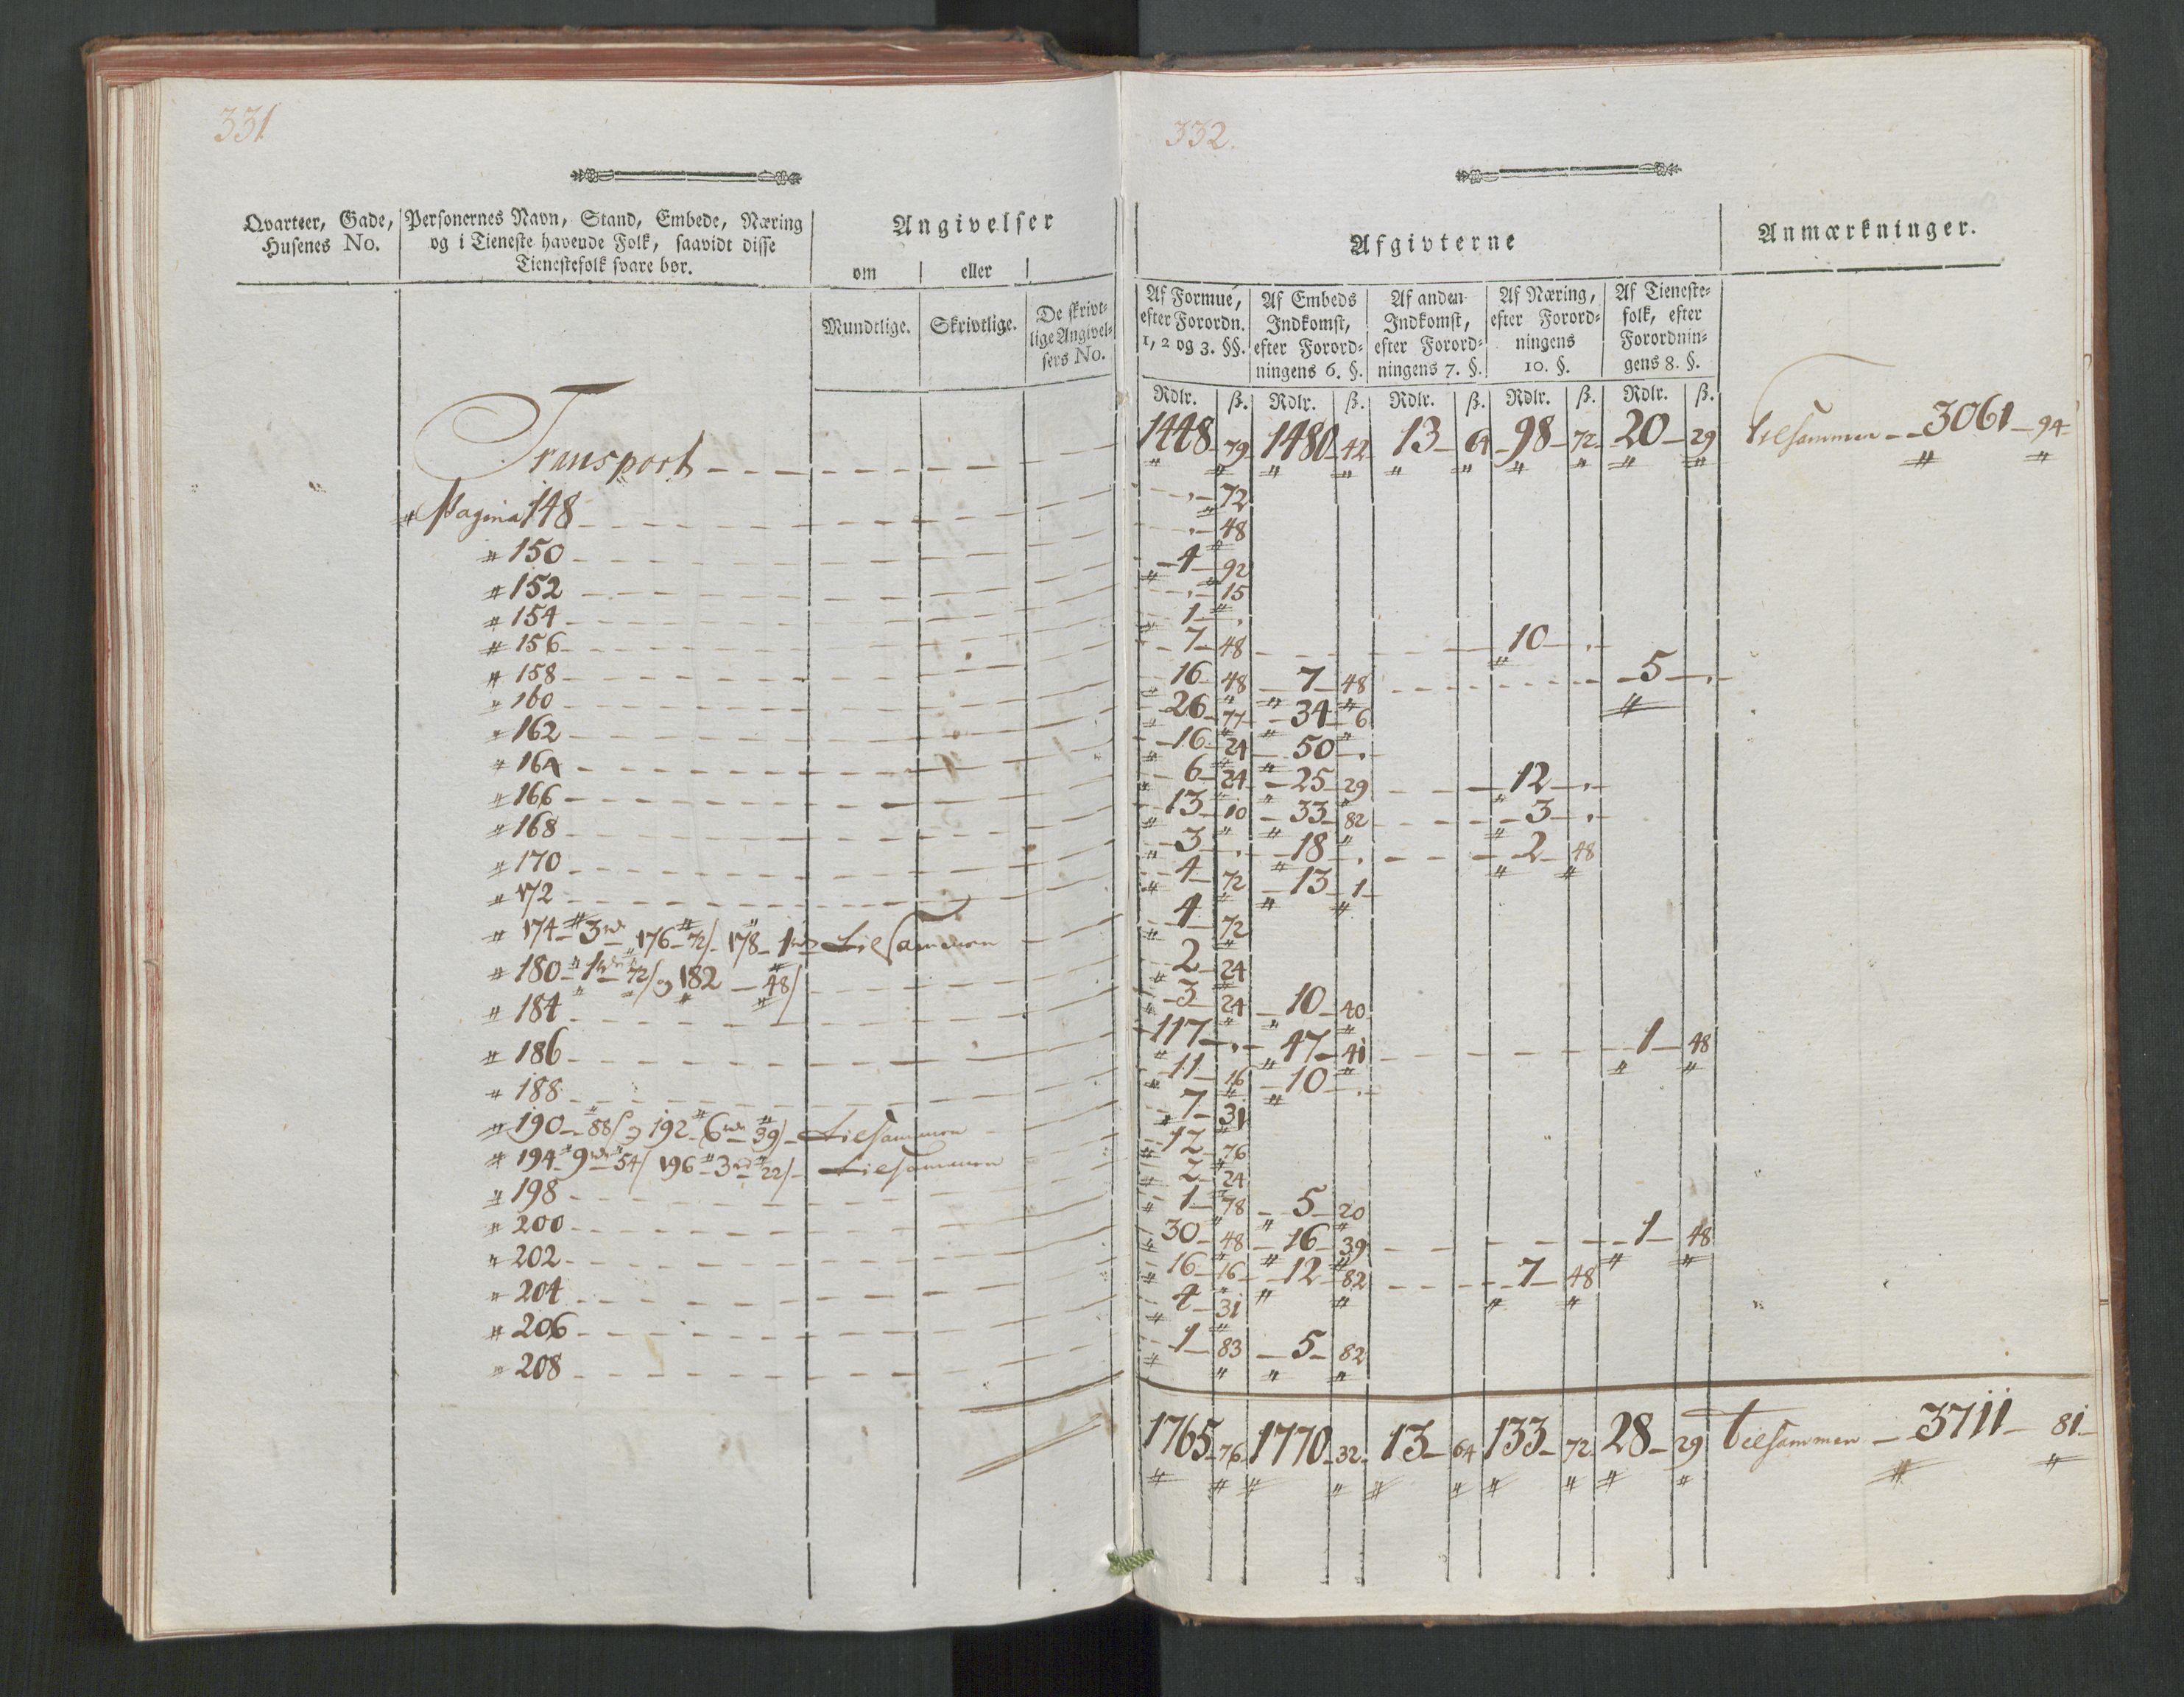 331
Qvarteer, Gade, Husenes No.
Personernes Navn, Stand, Embede, Næring og i Tieneste havende Folk, saavidt disse Tienestefolk svare bør.
Angivelser
om eller
Mundtlige. Skrivtlige. De skrivtlige Angivelsers No.
Transport
" Pagina 148
" 150
" 152
" 154
" 156
" 158
" 160
" 162
" 164
" 166
" 168
" 170
" 172
" 174 - 3 rd 176 - 72/ - 178 - 1 rd tilsammen
" 180 - 1 rd 72/ og 182 - 48/
" 184
" 186
" 188
" 190 - 88/ og 192 - 6 rd 39/ - tilsammen
" 194 - 9 rd 54/ 196 - 3 rd 22/ - tilsammen
" 198
" 200
" 202
" 204
" 206
" 208
332.
Afgivterne
Anmærkninger.
Af Formue, efter Forordn. 1, 2 og 3. §§.
Af Embeds Indkomst, efter Forordningens 6. §.
Af anden Indkomst, efter Forordningens 7. §.
Af Næring, efter Forordningens 10. §.
Af Tienestefolk, efter Forordningens 8. §.
Rdlr. ß. Rdlr. ß. Rdlr. ß. Rdlr. ß. Rdlr. ß.
1448 79 1480 42 13 64 98 72 20 29 tilsammen 3061 94
. 72
. 48
4 92
. 15
1 .
7 48 10 .
16 48 7 48 5 .
26 77 34 6
16 24 50 .
6 24 25 29 12 .
13 10 33 82 3 .
3 . 18 . 2 48
4 72 13 1
4 72
2 24
3 24 10 40
117 . 47 41 1 48
11 16 10 .
7 31
12 76
2 24
1 78 5 20
30 48 16 39 1 48
16 16 12 82 7 48
4 31
1 83 5 82
1765 76 1770 32 13 64 133 72 28 29 tilsammen 3711 81